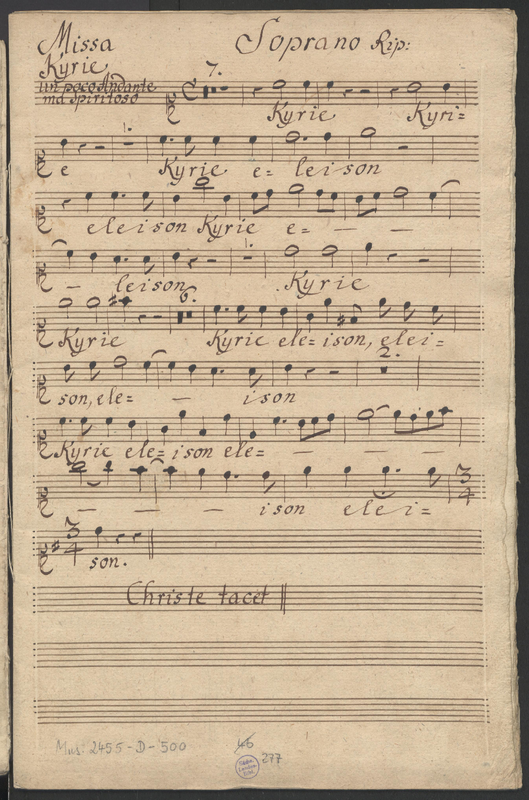 Missa
Soprano Rip:
Kyrie
un poco Andante
ma Spiritoso
7.
Kyrie Kyri=
e Kyrie e= leison
eleison Kyrie e= — —
— leison Kyrie
6.
Kyrie Kyrie ele= ison, elei=
2.
son, ele= — ison
Kyrie ele= ison ele= — — —
— — — ison elei=
3
4
3
4
son.
Christe tacet
Mus: 2455-D-500
46
277